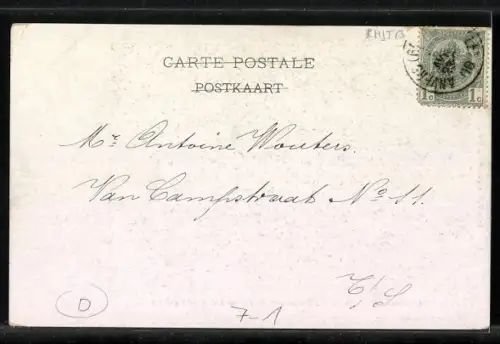 CARTE POSTALE
POSTKAART
1c 1c
Mr Antoine Wouters.
Van Campstraat No 11.
E/S
D
7-1